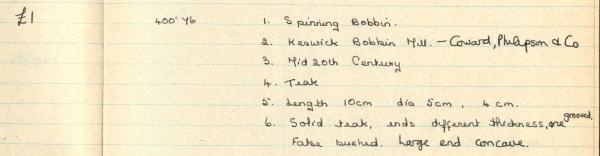 £1 400'Y6 1. Spinning Bobbin.
2. Keswick Bobbin Mill. - Coward, Philipson & Co
3. Mid 20th Century
4. Teak
5. Length 10cm dia 5cm, 4cm.
6. Solid teak, ends different thickness, one grooved.
False bushed. Large end concave.